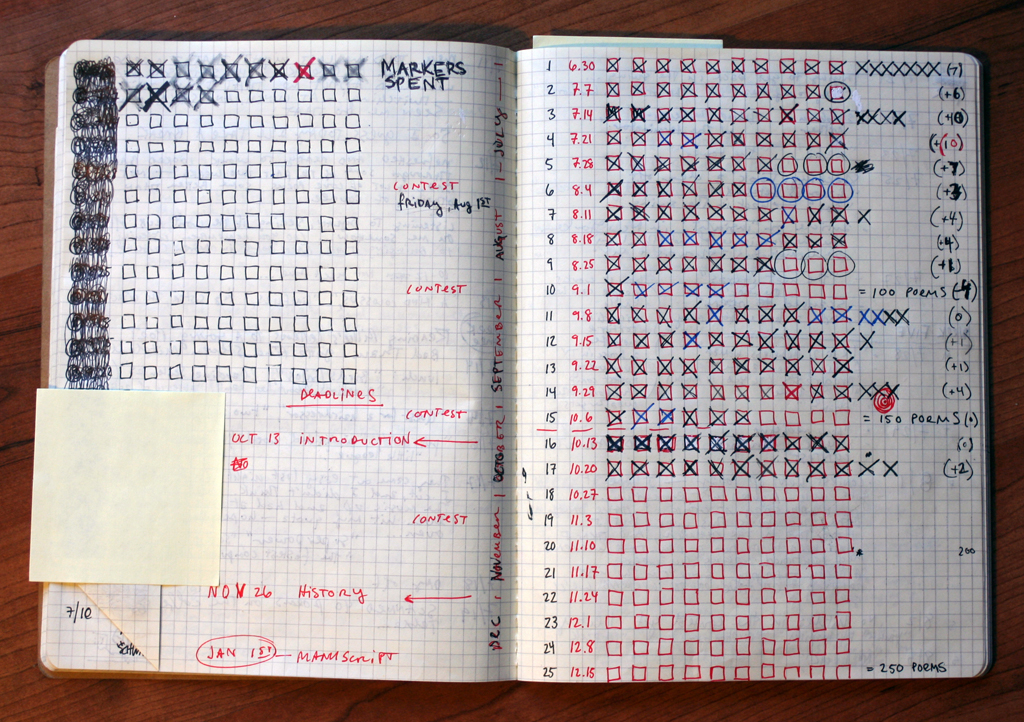 MARKERS
SPENT
CONTEST
FRIDAY, AUG 1ST
CONTEST
DEADLINES
CONTEST
OCT 13 INTRODUCTION
CONTEST
NOV 26 HISTORY
7/10
JAN 1ST — MANUSCRIPT
DEC | NOVEMBER | OCTOBER | SEPTEMBER | AUGUST | — JULY — |
1 6.30 XXXXXXX (7)
2 7.7 (+6)
3 7.14 XXXX
4 7.21 (+10)
5 7.28
6 8.4
7 8.11 X (+4)
8 8.18
9 8.25 (+1)
10 9.1 = 100 POEMS
11 9.8 XXXX (0)
12 9.15 X (+1)
13 9.22 (+1)
14 9.29 XX (+4)
15 10.6 = 150 POEMS (0)
16 10.13 (0)
17 10.20 X X (+2)
18 10.27
19 11.3
20 11.10 200
21 11.17
22 11.24
23 12.1
24 12.8
25 12.15 = 250 POEMS